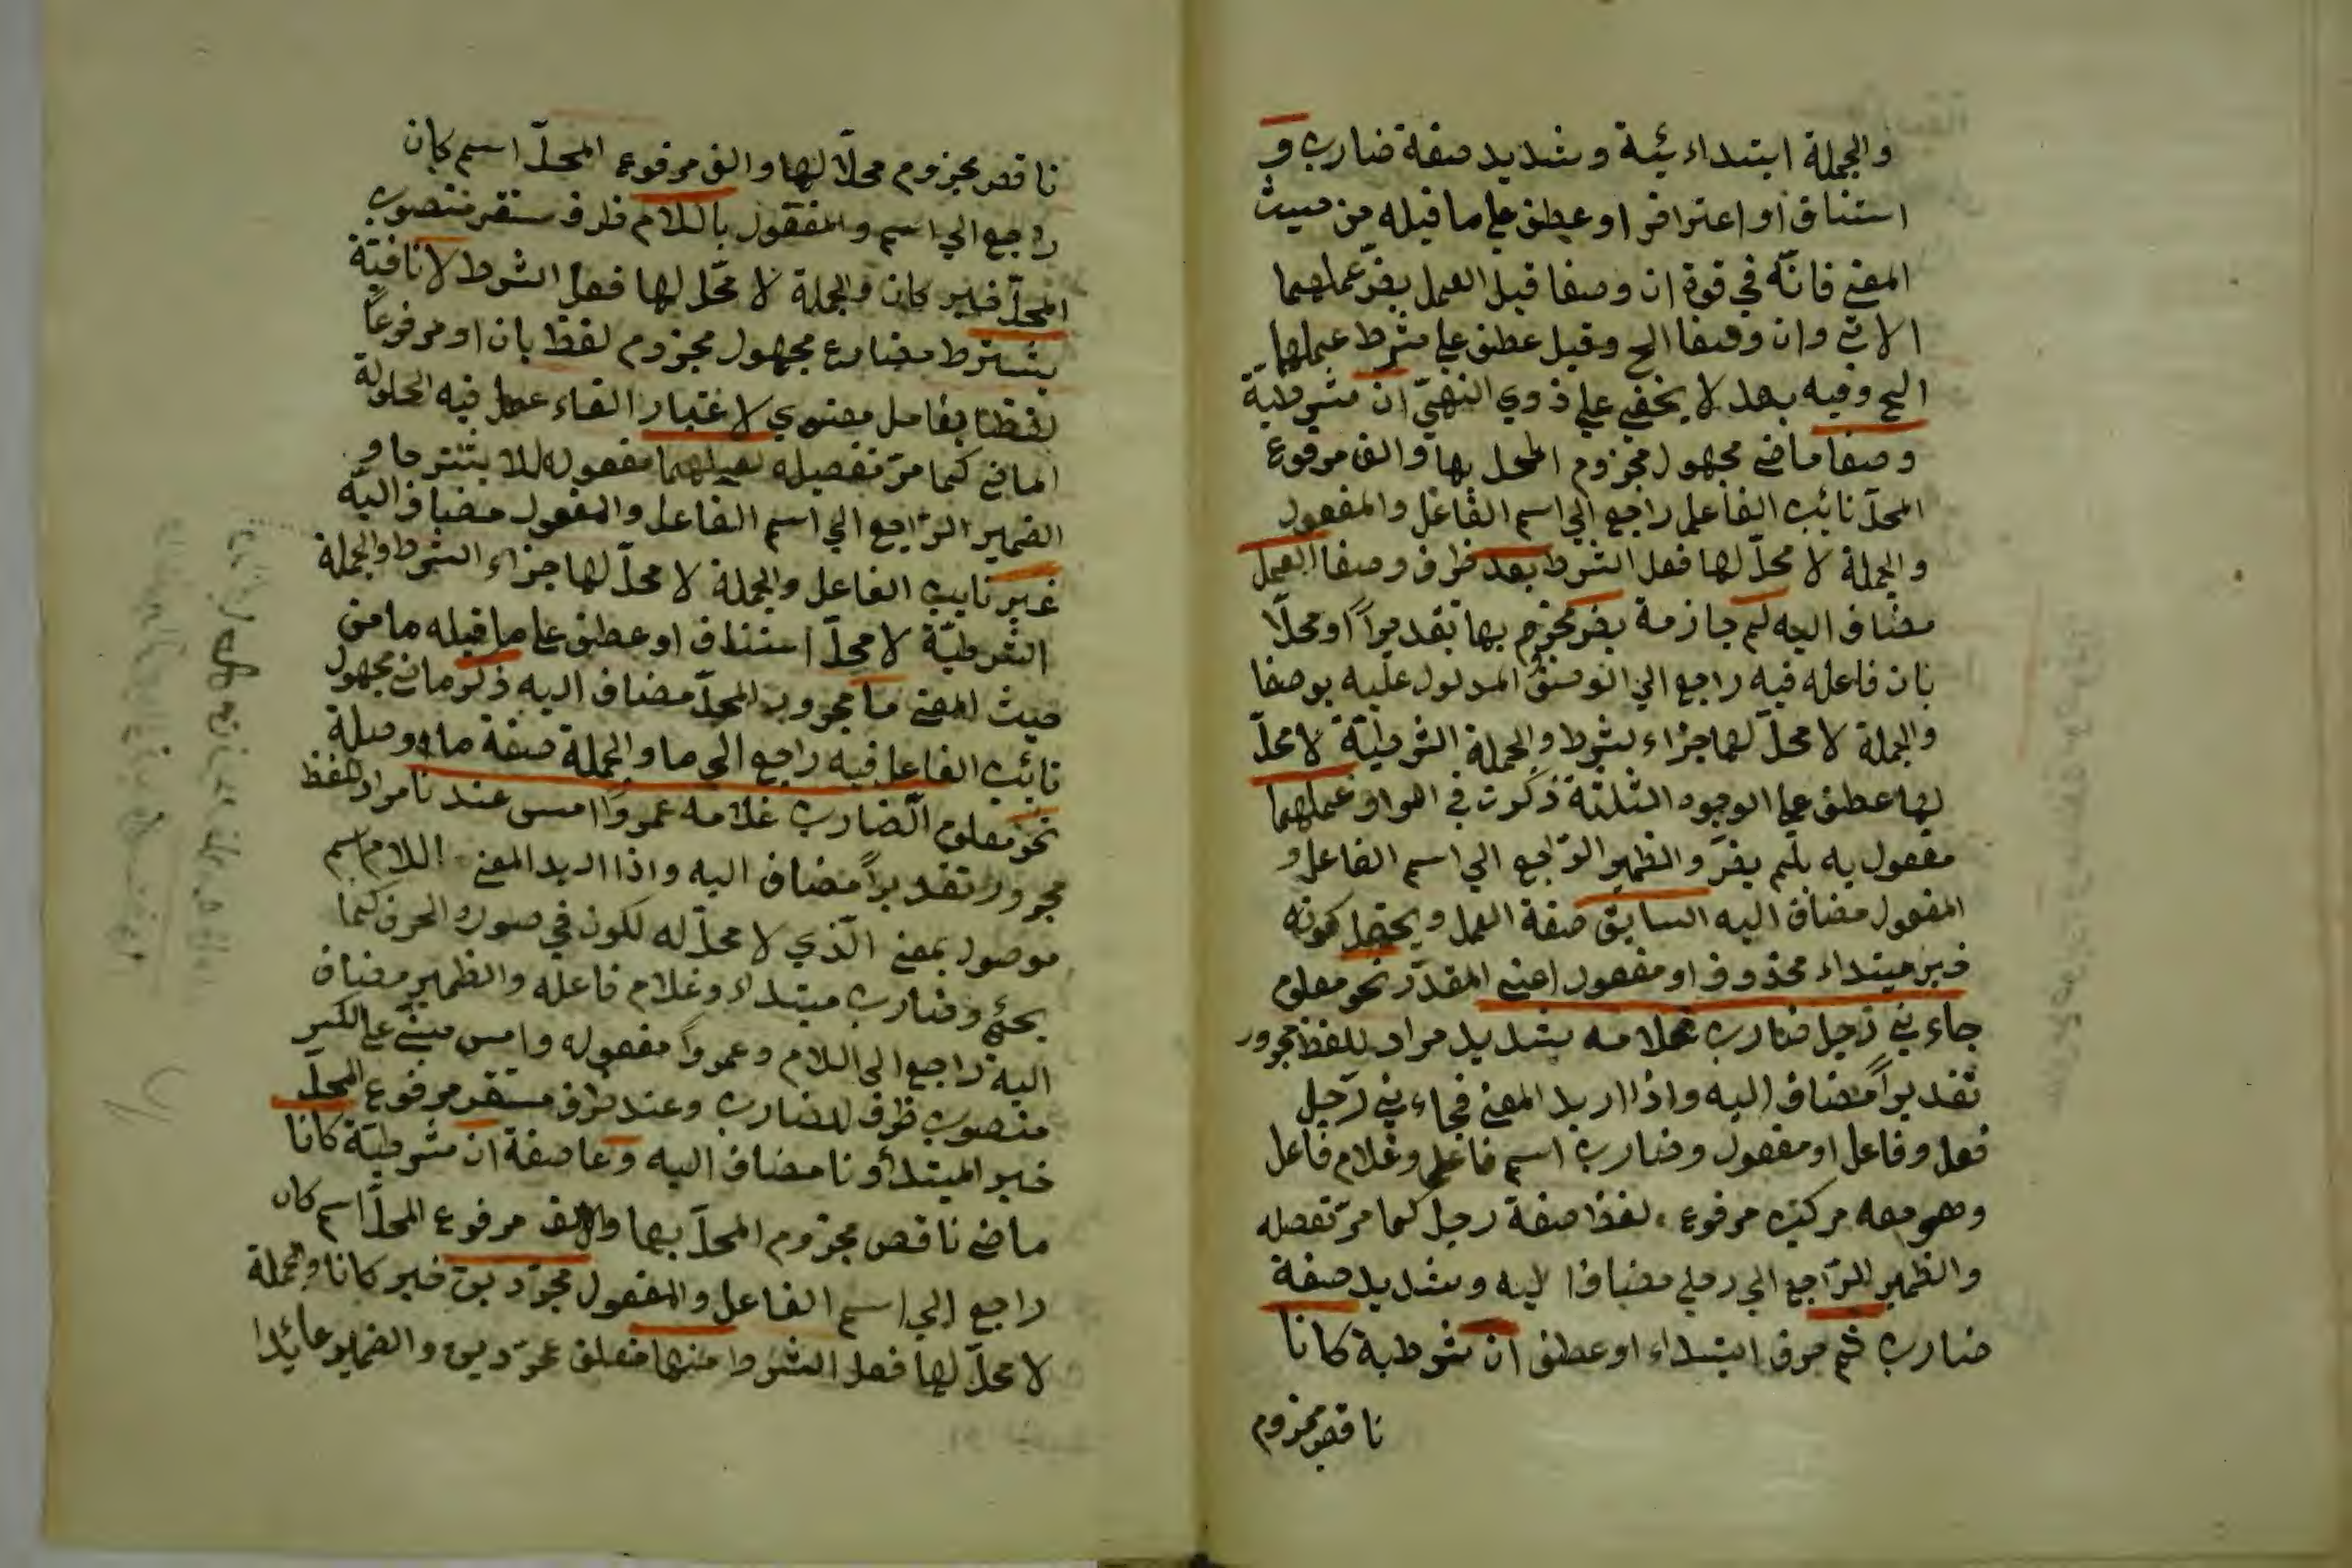 والجملة ابتداء ئية وشديد صفة ضارب و
استئناف او اعتراض او عطف على ما قبله من حيث
المعنى فانه في قوة ان وصفا قبل العمل يضر عملهما
الاتى وان وصفا الخ وقيل عطف على شرط عملهما
الخ وفيه بعد لا يخفى على ذوي النهى ان شرطية
وصفا ماضى مجهول مجزوم المحل بها والف مرفوع
المحل نائب الفاعل راجع الى اسم الفاعل والمفعول
والجملة لا محل لها فعل الشرط بعد ظرف وصفا العمل
مضاف اليه لم جازمة يضر مجزوم بها تقديرا او محلا
بان فاعله فيه راجع الى الوصف المدلول عليه بوصفا
والجملة لا محل لها جزاء بشرط والجملة الشرطية لا محل
لها عطف على الوجوه الثلثة ذكرت في الواو عملهما
مفعول به بلم يضر والظمير الراجع الى اسم الفاعل و
المفعول مضاف اليه السابق صفة العمل ويحتمل كونه
خبر مبتداء محذوف او مفعول اعنى المقدر نحو معلوم
جاء نى رجل ضارب غلامه شديد مراد للفظ مجرور
تقديرا مضاف اليه واذا اريد المعنى فجاء نى رجل
فعل وفاعل او مفعول وضارب اسم فاعل وغلام فاعل
وهو معه مركب مرفوع لفظا صفة رجل كما مر تفصله
والظمير الراجع الى رجل مضافا ليه وشديد صفة
ضارب ثم حرف ابتداء او عطف ان شرطية كانا
ناقص مجزوم
ناقص مجزوم محلا لها والف مرفوع المحل اسم كان
راجع الى اسم والمفعول باللام ظرف مستقر منصوب
المحل خبر كان والجملة لا محل لها فعل الشرط لا نافية
يشترط مضارع مجهول مجزوم لفظ بان او مرفوعا
لفظا بعامل معنوي لا عتبار الغاء عمل فيه لحلولة
الماضى كما مر تفصيله لعملهما مفعول له للا يشترط و
الضمير الراجع الى اسم الفاعل والمفعول مضاف اليه
غير نايب الفاعل والجملة لا محل لها جزاء الشرط والجملة
الشرطية لا محل استئناف او عطف على ما قبله ما من
حيث المعنى ما مجرور المحل مضاف اليه ذكر ماضى مجهول
نائب الفاعل فيه راجع الى ما والجملة صفة ما او صلة
نحو معلوم الضارب غلامه عمروا امس عند نا مراد للفظ
مجرور تقديرا مضاف اليه واذا اريد المعنى اللام اسم
موصول بمعنى الذي لا محل له لكون في صورة الحرف كما
يجئ وضارب مبتداء وغلام فاعله والظمير مضاف
اليه راجع الى اللام وعمروا مفعوله وامس مبنى على الكسر
منصوب ظرف لضارب وعند ظرف مستقر مرفوع المحل
خبر المبتدأ ونا مضاف اليه وعاصفة ان شرطية كانا
ماضى ناقص مجزوم المحل بها والالف مرفوع المحل اسم كان
راجع الى اسم الفاعل والمفعول مجردين خبر كانا والجملة
لا محل لها فعل الشرط منها متعلق بمجردين والضمير عائدا